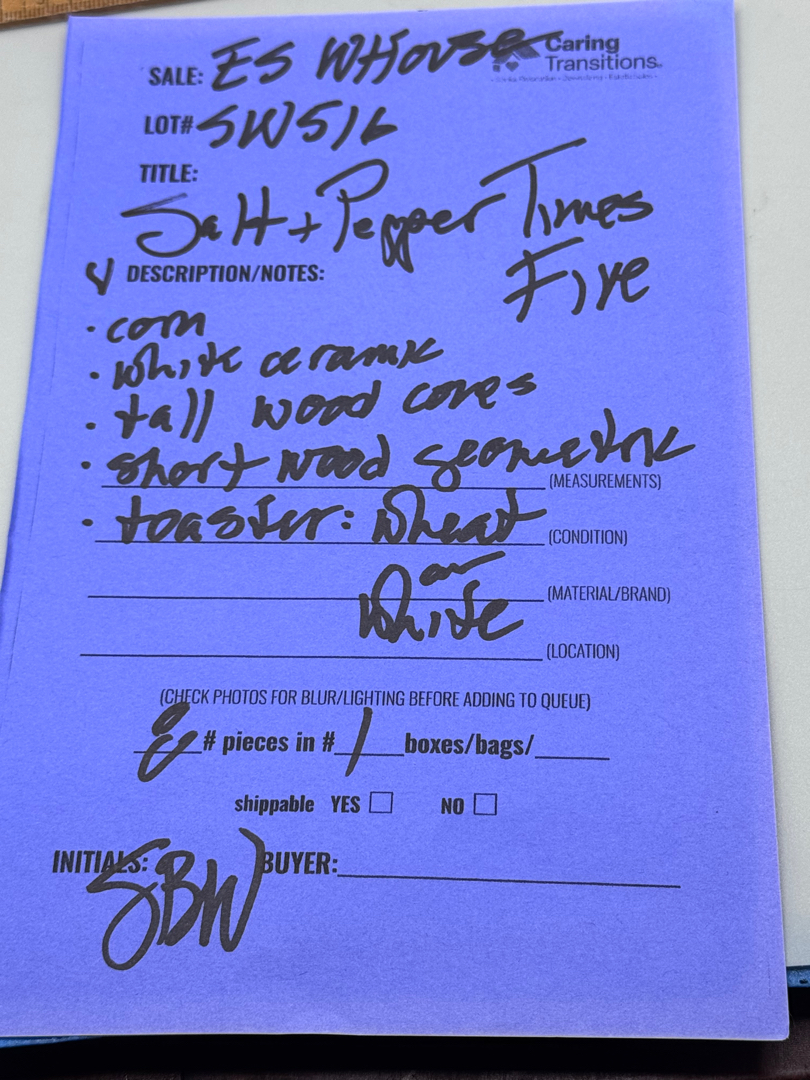 SALE: ES WHouse
Caring
Transitions
LOT# SW516
TITLE:
Salt + Pepper Times
Five
DESCRIPTION/NOTES:
• corn
• white ceramic
• tall wood cones
• short wood geometric
(MEASUREMENTS)
• toaster: wheat
(CONDITION)
or
(MATERIAL/BRAND)
white
(LOCATION)
(CHECK PHOTOS FOR BLUR/LIGHTING BEFORE ADDING TO QUEUE)
# pieces in # 1 boxes/bags/
shippable YES NO
INITIALS: SBW BUYER: